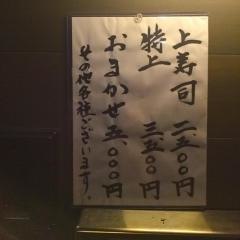 上寿司 二、五〇〇円
特上 三、五〇〇円
おまかせ 五、〇〇〇円
その他各種ございます。